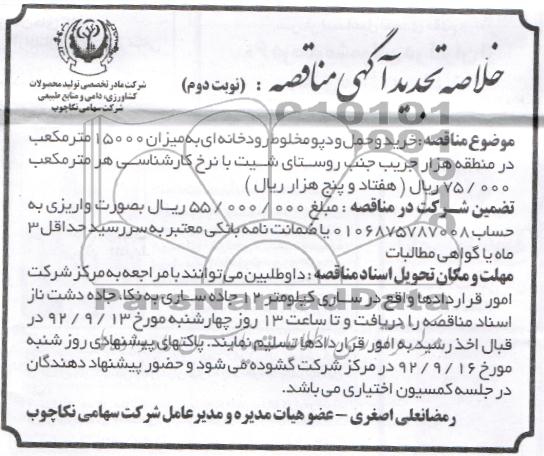 خلاصه تجدید آگهی مناقصه : (نوبت دوم)
شرکت مادر تخصصی تولید محصولات
کشاورزی، دامی و منابع طبیعی
شرکت سهامی نکاچوب
موضوع مناقصه : خرید و حمل و دپو مخلوط رودخانه ای به میزان ۱۵۰۰۰ مترمکعب
در منطقه هزار جریب جنب روستای شیت با نرخ کارشناسی هر متر مکعب
۷۵/۰۰۰ ریال ( هفتاد و پنج هزار ریال )
تضمین شرکت در مناقصه : مبلغ ۵۵/۰۰۰/۰۰۰ ریال بصورت واریزی به
حساب ۰۱۰۶۸۷۵۷۸۷۰۰۸ یا ضمانت نامه بانکی معتبر به سررسید حداقل ۳
ماه یا گواهی مطالبات
مهلت و مکان تحویل اسناد مناقصه : داوطلبین می توانند با مراجعه به مرکز شرکت
امور قراردادها واقع در ساری کیلومتر ۱۲ جاده ساری به نکا، جاده دشت ناز
اسناد مناقصه را دریافت و تا ساعت ۱۳ روز چهارشنبه مورخ ۹۲/۹/۱۳ در
قبال اخذ رسید به امور قراردادها تسلیم نمایند. پاکتهای پیشنهادی روز شنبه
مورخ ۹۲/۹/۱۶ در مرکز شرکت گشوده می شود و حضور پیشنهاد دهندگان
در جلسه کمسیون اختیاری می باشد.
رمضانعلی اصغری – عضو هیات مدیره و مدیر عامل شرکت سهامی نکاچوب
ParsNamadData